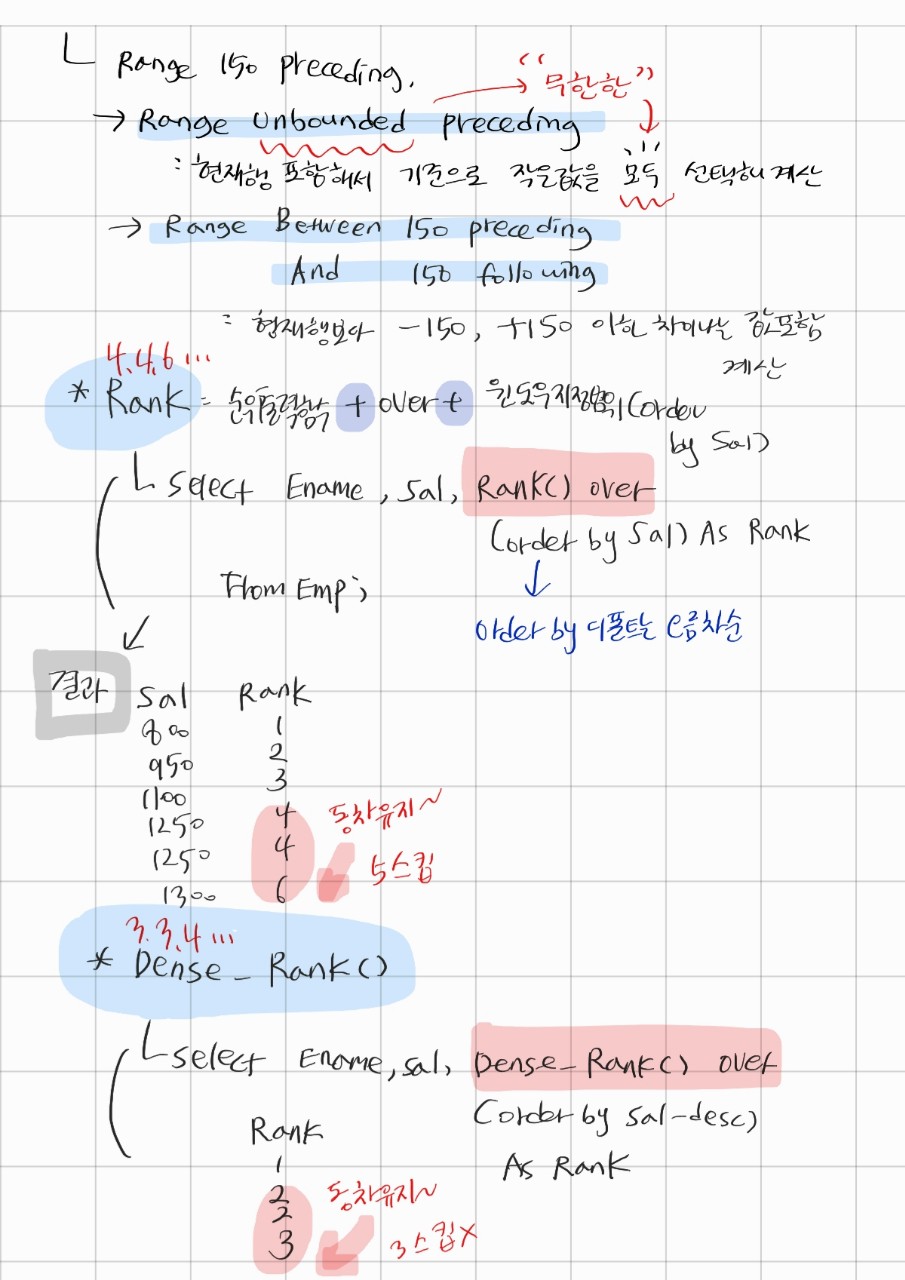 └ Range 150 preceding.
“무한한”
→ Range unbounded preceding
: 현재행 포함해서 기준으로 작은값을 모두 선택해 계산
→ Range Between 150 preceding
And 150 following
: 현재행보다 -150, +150 이한 차이나는 값포함
계산
4.4.6 ...
* Rank = 순위출력함수 + over + 윈도우지정범위(order
by Sal)
└ select Ename, sal, Rank() over
(order by Sal) As Rank
From Emp;
↓
order by 디폴트는 오름차순
결과
Sal Rank
800 1
950 2
1100 3
1250 4 동차유지~
1250 4
5스킵
1300 6
3.3.4 ...
* Dense_Rank()
└ select Ename, sal, Dense_Rank() over
(order by sal-desc)
As Rank
Rank
1
2 동차유지~
2
3 3스킵X